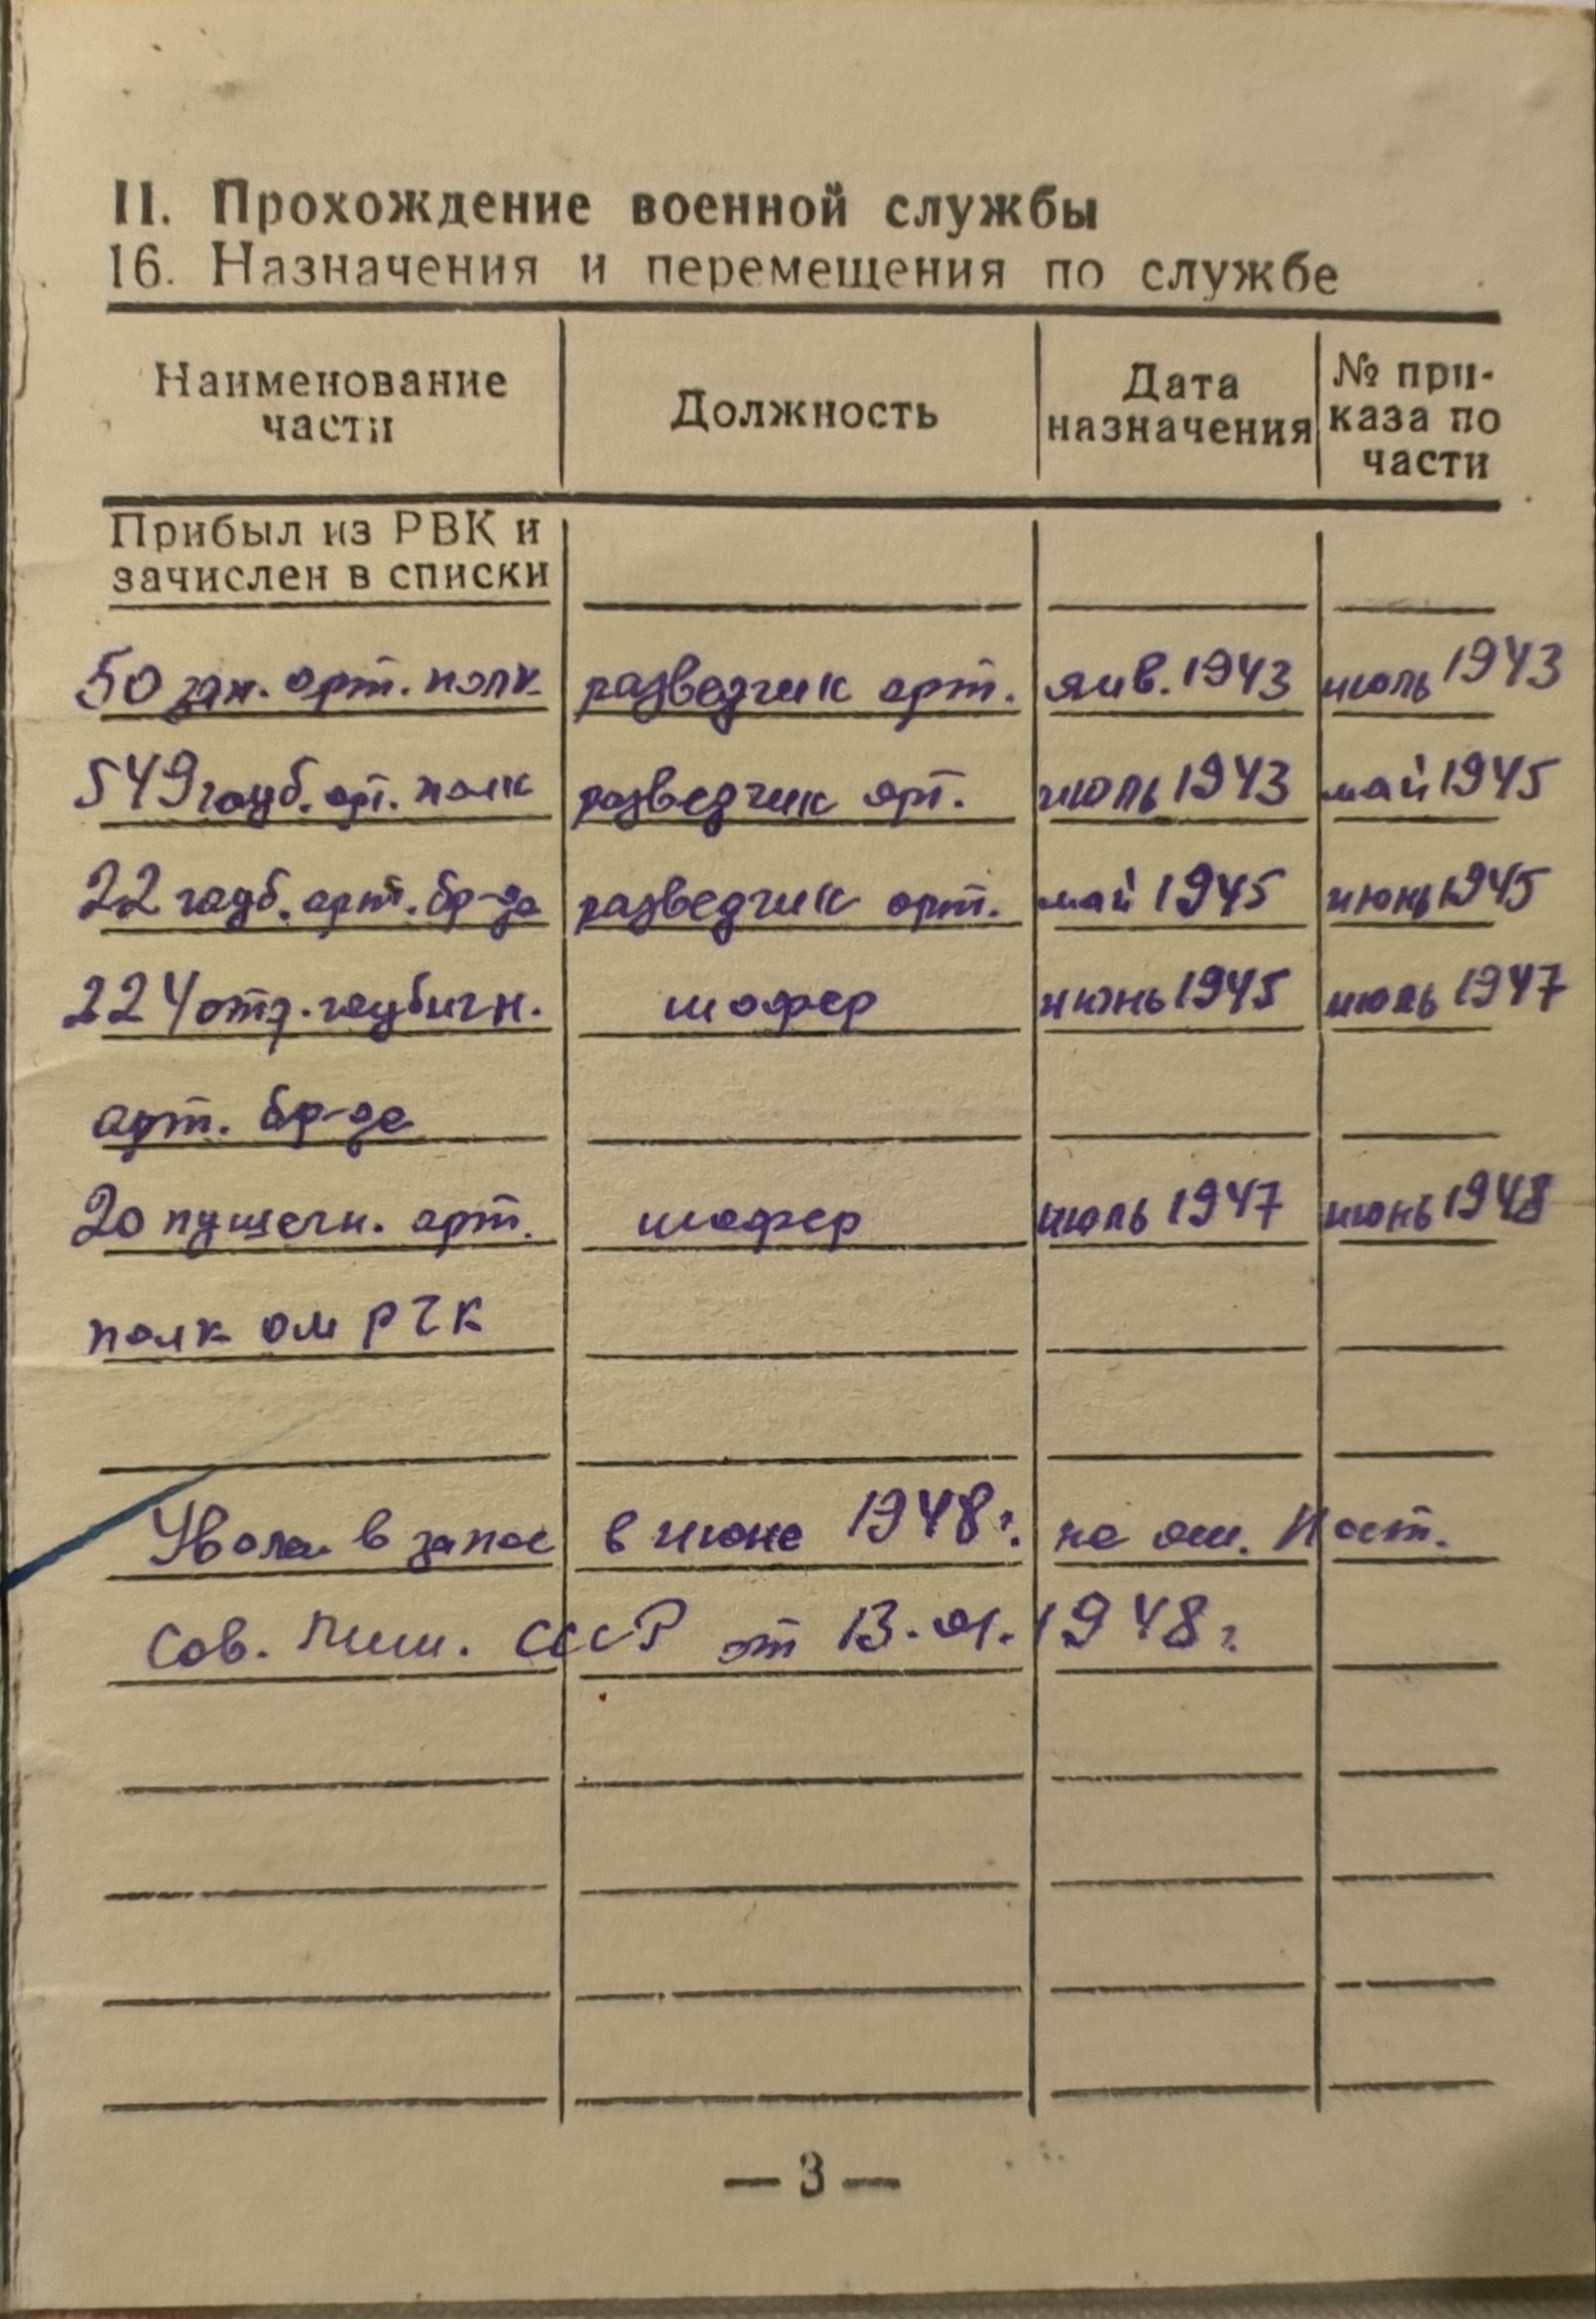 II. Прохождение военной службы
16. Назначения и перемещения по службе
Наименование части Должность Дата назначения № при-каза по части
Прибыл из РВК и
зачислен в списки
50 зап. арт. полк разведчик арт. янв. 1943 июль 1943
549 гауб. арт. полк разведчик арт. июль 1943 май 1945
22 гауб. арт. бр-да разведчик арт. май 1945 июнь 1945
224 отд. гаубичн. шофер июнь 1945 июль 1947
арт. бр-да
20 пушечн. арт. шофер июль 1947 июнь 1948
полк РГК
Уволен в запас в июне 1948 г. на осн. Пост.
Сов. Мин. СССР от 13.01.1948 г.
— 3 —